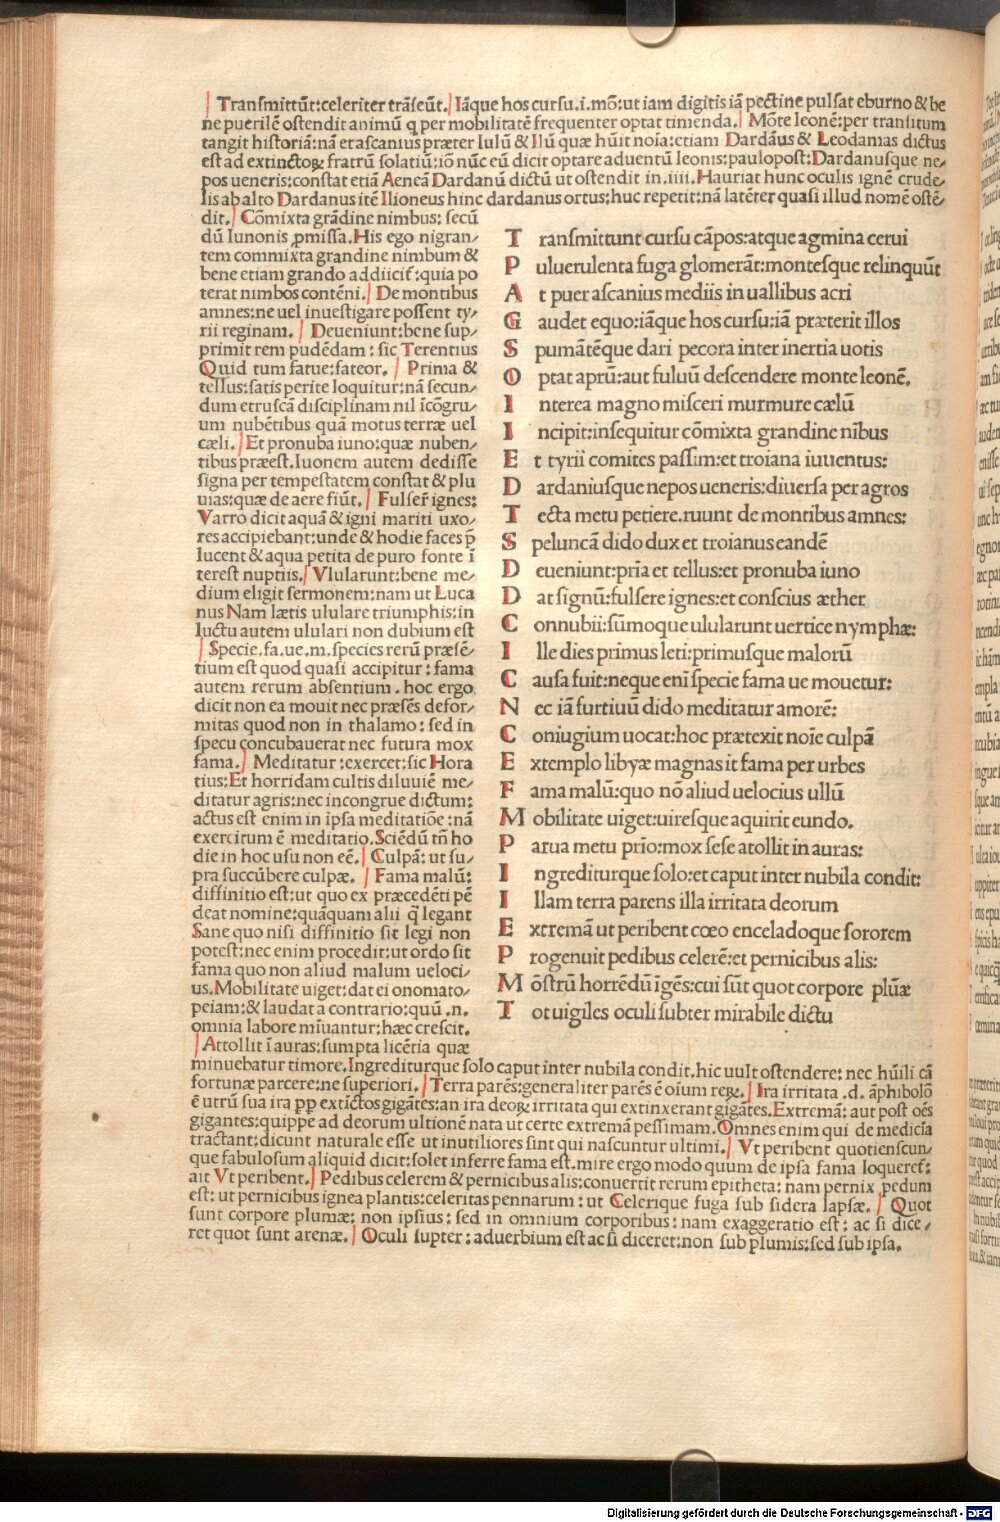 Transmittūt:celeriter trāſeūt. Iāque hos curſu.i.mō:ut iam digitis iā pectine pulſat eburno & be
ne puerilē oſtendit animū q per mobilitatē frequenter optat timenda. Mōte leonē:per tranſitum
tangit hiſtoriā:nā et aſcanius præter Iulū & Ilū quæ hūit noīa:etiam Dardāus & Leodamas dictus
eſt ad extinctoꝝ fratrū ſolatiū:iō nūc eū dicit optare aduentū leonis:paulopoſt:Dardanuſque ne⸗
pos ueneris:conſtat etiā Aeneā Dardanū dictū ut oſtendit in.iiii.Hauriat hunc oculis ignē crude⸗
lis ab alto Dardanus itē Ilioneus hinc dardanus ortus:huc repetit:nā latēter quaſi illud nomē oſtē⸗
dit. Cōmixta grādine nimbus: ſecū
dū Iunonis ꝓmiſſa.His ego nigran⸗
tem commixta grandine nimbum &
bene etiam grando addiicit̄:quia po
terat nimbos contēni. De montibus
amnes:ne uel inueſtigare poſſent ty⸗
rii reginam. Deueniunt:bene ſup⸗
primit rem pudēdam: ſic Terentius
Quid tum fatue:fateor. Prima &
tellus:ſatis perite loquitur:nā ſecun⸗
dum etruſcā diſciplinam nil īcōgru⸗
um nubētibus quā motus terræ uel
cæli. Et pronuba iuno:quæ nuben⸗
tibus præeſt.Iuonem autem dediſſe
ſigna per tempeſtatem conſtat & plu
uias:quæ de aere fiūt. Fulſer̄ ignes:
Varro dicit aquā & igni mariti uxo⸗
res accipiebant:unde & hodie faces p̄
lucent & aqua petita de puro fonte ī
tereſt nuptiis. Vlularunt:bene me⸗
dium eligit ſermonem:nam ut Luca
nus Nam lætis ululare triumphis:in
luctu autem ululari non dubium eſt
Specie.fa.ue.m.ſpecies rerū præſē⸗
tium eſt quod quaſi accipitur: fama
autem rerum abſentium. hoc ergo
dicit non ea mouit nec præſēs defor⸗
mitas quod non in thalamo: ſed in
ſpecu concubauerat nec futura mox
fama. Meditatur:exercet:ſic Hora
tius:Et horridam cultis diluuiē me⸗
ditatur agris:nec incongrue dictum:
actus eſt enim in ipſa meditatiōe:nā
exercitum ē meditatio.Sciēdū tn̄ ho
die in hoc uſu non eē. Culpā: ut ſu⸗
pra ſuccūbere culpæ. Fama malū:
diffinitio eſt:ut quo ex præcedēti pē
deat nomine:quāquam alii q̄ legant
Sane quo niſi diffinitio ſit legi non
poteſt:nec enim procedit:ut ordo ſit
fama quo non aliud malum ueloci⸗
us.Mobilitate uiget:dat ei onomato⸗
peiam:& laudat a contrario:quū .n.
omnia labore mīuantur:hæc creſcit.
Attollit ī auras:ſumpta licētia quæ
T ranſmittunt curſu cāpos:atque agmina cerui
P uluerulenta fuga glomerāt:monteſque relinquūt
A t puer aſcanius mediis in uallibus acri
G audet equo:iāque hos curſu:iā præterit illos
S pumātēque dari pecora inter inertia uotis
O ptat aprū:aut fuluū deſcendere monte leonē.
I nterea magno miſceri murmure cælū
I ncipit:inſequitur cōmixta grandine nībus
E t tyrii comites paſſim:et troiana iuuentus:
D ardaniuſque nepos ueneris:diuerſa per agros
T ecta metu petiere.ruunt de montibus amnes:
S peluncā dido dux et troianus eandē
D eueniunt:prīa et tellus:et pronuba iuno
D at ſignū:fulſere ignes:et conſcius æther
C onnubii:ſūmoque ulularunt uertice nymphæ:
I lle dies primus leti:primuſque malorū
C auſa fuit:neque enī ſpecie fama ue mouetur:
N ec iā furtiuū dido meditatur amorē:
C oniugium uocat:hoc prætexit noīe culpā
E xtemplo libyæ magnas it fama per urbes
F ama malū:quo nō aliud uelocius ullū
M obilitate uiget:uireſque aquirit eundo.
P arua metu prīo:mox ſeſe atollit in auras:
I ngrediturque ſolo:et caput inter nubila condit:
I llam terra parens illa irritata deorum
E xtremā ut peribent cœo enceladoque ſororem
P rogenuit pedibus celerē:et pernicibus alis:
M ōſtrū horrēdū īgēs:cui ſūt quot corpore plūæ
T ot uigiles oculi ſubter mirabile dictu
minuebatur timore.Ingrediturque ſolo caput inter nubila condit.hic uult oſtendere: nec hūili cā
fortunæ parcere:ne ſuperiori. Terra parēs:generaliter parēs ē oīum reꝝ. Ira irritata .d. āphibolō
ē utrū ſua ira ꝓp extīctos gigātes:an ira deoꝝ irritata qui extinxerant gigātes.Extremā: aut poſt oēs
gigantes:quippe ad deorum ultionē nata ut certe extremā peſſimam.Omnes enim qui de medicīa
tractant:dicunt naturale eſſe ut inutiliores ſint qui naſcuntur ultimi. Vt peribent quotienſcun⸗
que fabuloſum aliquid dicit:ſolet inferre fama eſt.mire ergo modo quum de ipſa fama loqueret̄:
ait Vt peribent. Pedibus celerem & pernicibus alis:conuertit rerum epitheta: nam pernix pedum
eſt: ut pernicibus ignea plantis:celeritas pennarum: ut Celerique fuga ſub ſidera lapſæ. Quot
ſunt corpore plumæ: non ipſius: ſed in omnium corporibus: nam exaggeratio eſt: ac ſi dice⸗
ret quot ſunt arenæ. Oculi ſupter: aduerbium eſt ac ſi diceret:non ſub plumis:ſed ſub ipſa.
Digitalisierung gefördert durch die Deutsche Forschungsgemeinschaft - DFG